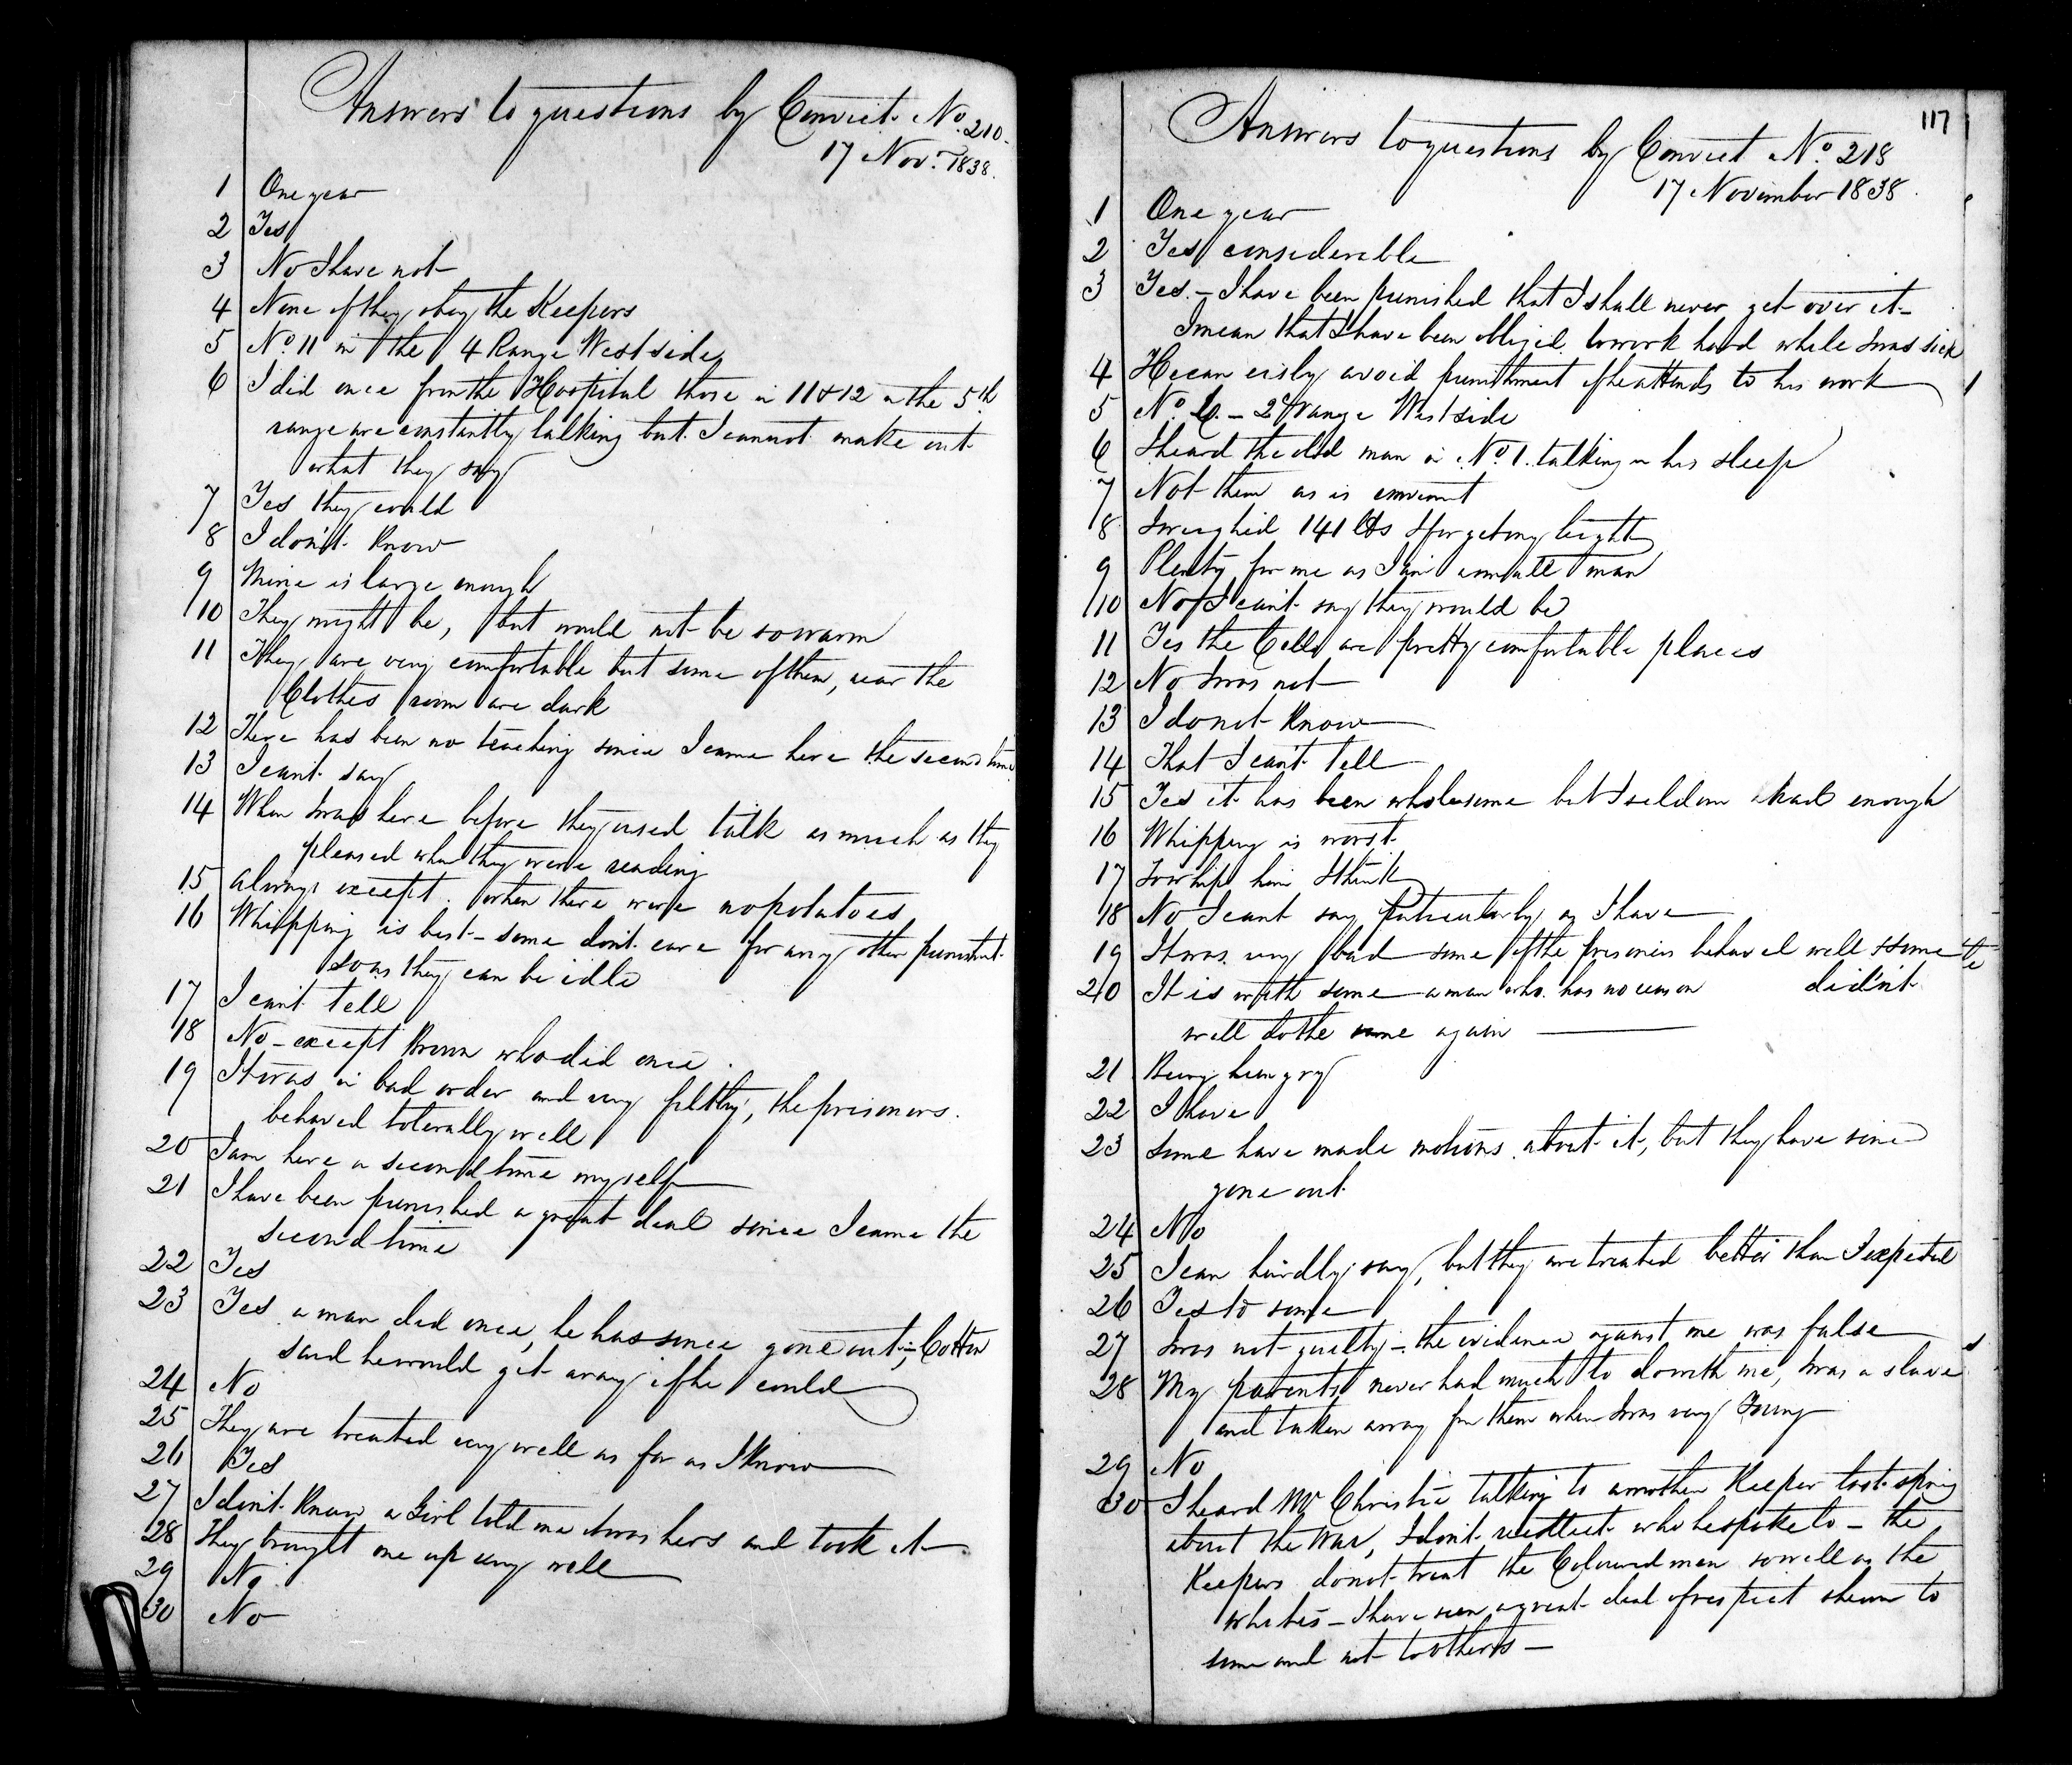 Answers to questions by Convict No. 210.
17 Nov. 1838.
1 One year
2 Yes
3 No I have not
4 None if they obey the Keepers
5 No. 11 in the 4 Range West side
6 I did once from the Hospital those in 11 & 12 in the 5th
range are constantly talking but I cannot make out
what they say
7 Yes they could
8 I don't know
9 Mine is large enough
10 They might be, but would not be so warm
11 They are very comfortable but some of them, near the
Clothes room are dark
12 There has been no teaching since I came here the second time
13 I can't say
14 When I was here before they used talk as much as they
pleased when they were reading
15 always except when there were no potatoes
16 Whipping is best - some don't care for any other punishmt.
so as they can be idle
17 I can't tell
18 No - except Brown who did once.
19 It was in bad order and very filthy, the prisoners.
behaved tolerally well
20 I am here a second time myself
21 I have been punished a great deal since I came the
second time
22 Yes
23 Yes a man did once, he has since gone out; Cotton
said he would get away if he could
24 No
25 They are treated very well as far as I know
26 Yes
27 I don't know a Girl told me it was hers and took it
28 They brought me up very well
29 No
30 No
117
Answers to questions by Convict No. 218
17 November 1838.
1 One year
2 Yes considerable
3 Yes. - I have been punished that I shall never get over it -
I mean that I have been obliged to work hard while I was sick
4 He can eisly avoid punishment if he attends to his work
5 No. 6. - 2d range West side
6 I heard the old man in No. 1. talking in his sleep
7 Not them as is convenient
8 I weighed 141 lbs I forget my height
9 Plenty for me as I am a small man
10 No I can't say they would be
11 Yes the Cells are pretty comfortable places
12 No I was not
13 I do not know
14 That I can't tell
15 Yes it has been wholesome but I seldom had enough
16 Whipping is worst.
17 To whip him I think
18 No I cant say particularly as I have
19 It was very bad some of the prisoners behaved well & some
didn't
20 It is with some a man who has no reason
will do the same again
21 Being hungry
22 I have
23 Some have made motions about it, but they have since
gone out
24 No
25 I can hardly say, but they are treated better than I expected
26 Yes to some
27 I was not guilty - the evidence against me was false
28 My parents never had much to do with me, I was a slave
and taken away from them when I was very Young
29 No
30 I heard Mr Christie talking to another Keeper last spring
about the War, I don't recollect who he spoke to - the
Keepers do not treat the Coloured men so well as the
whites - I have seen a great deal of respect shewn to
some and not to others -